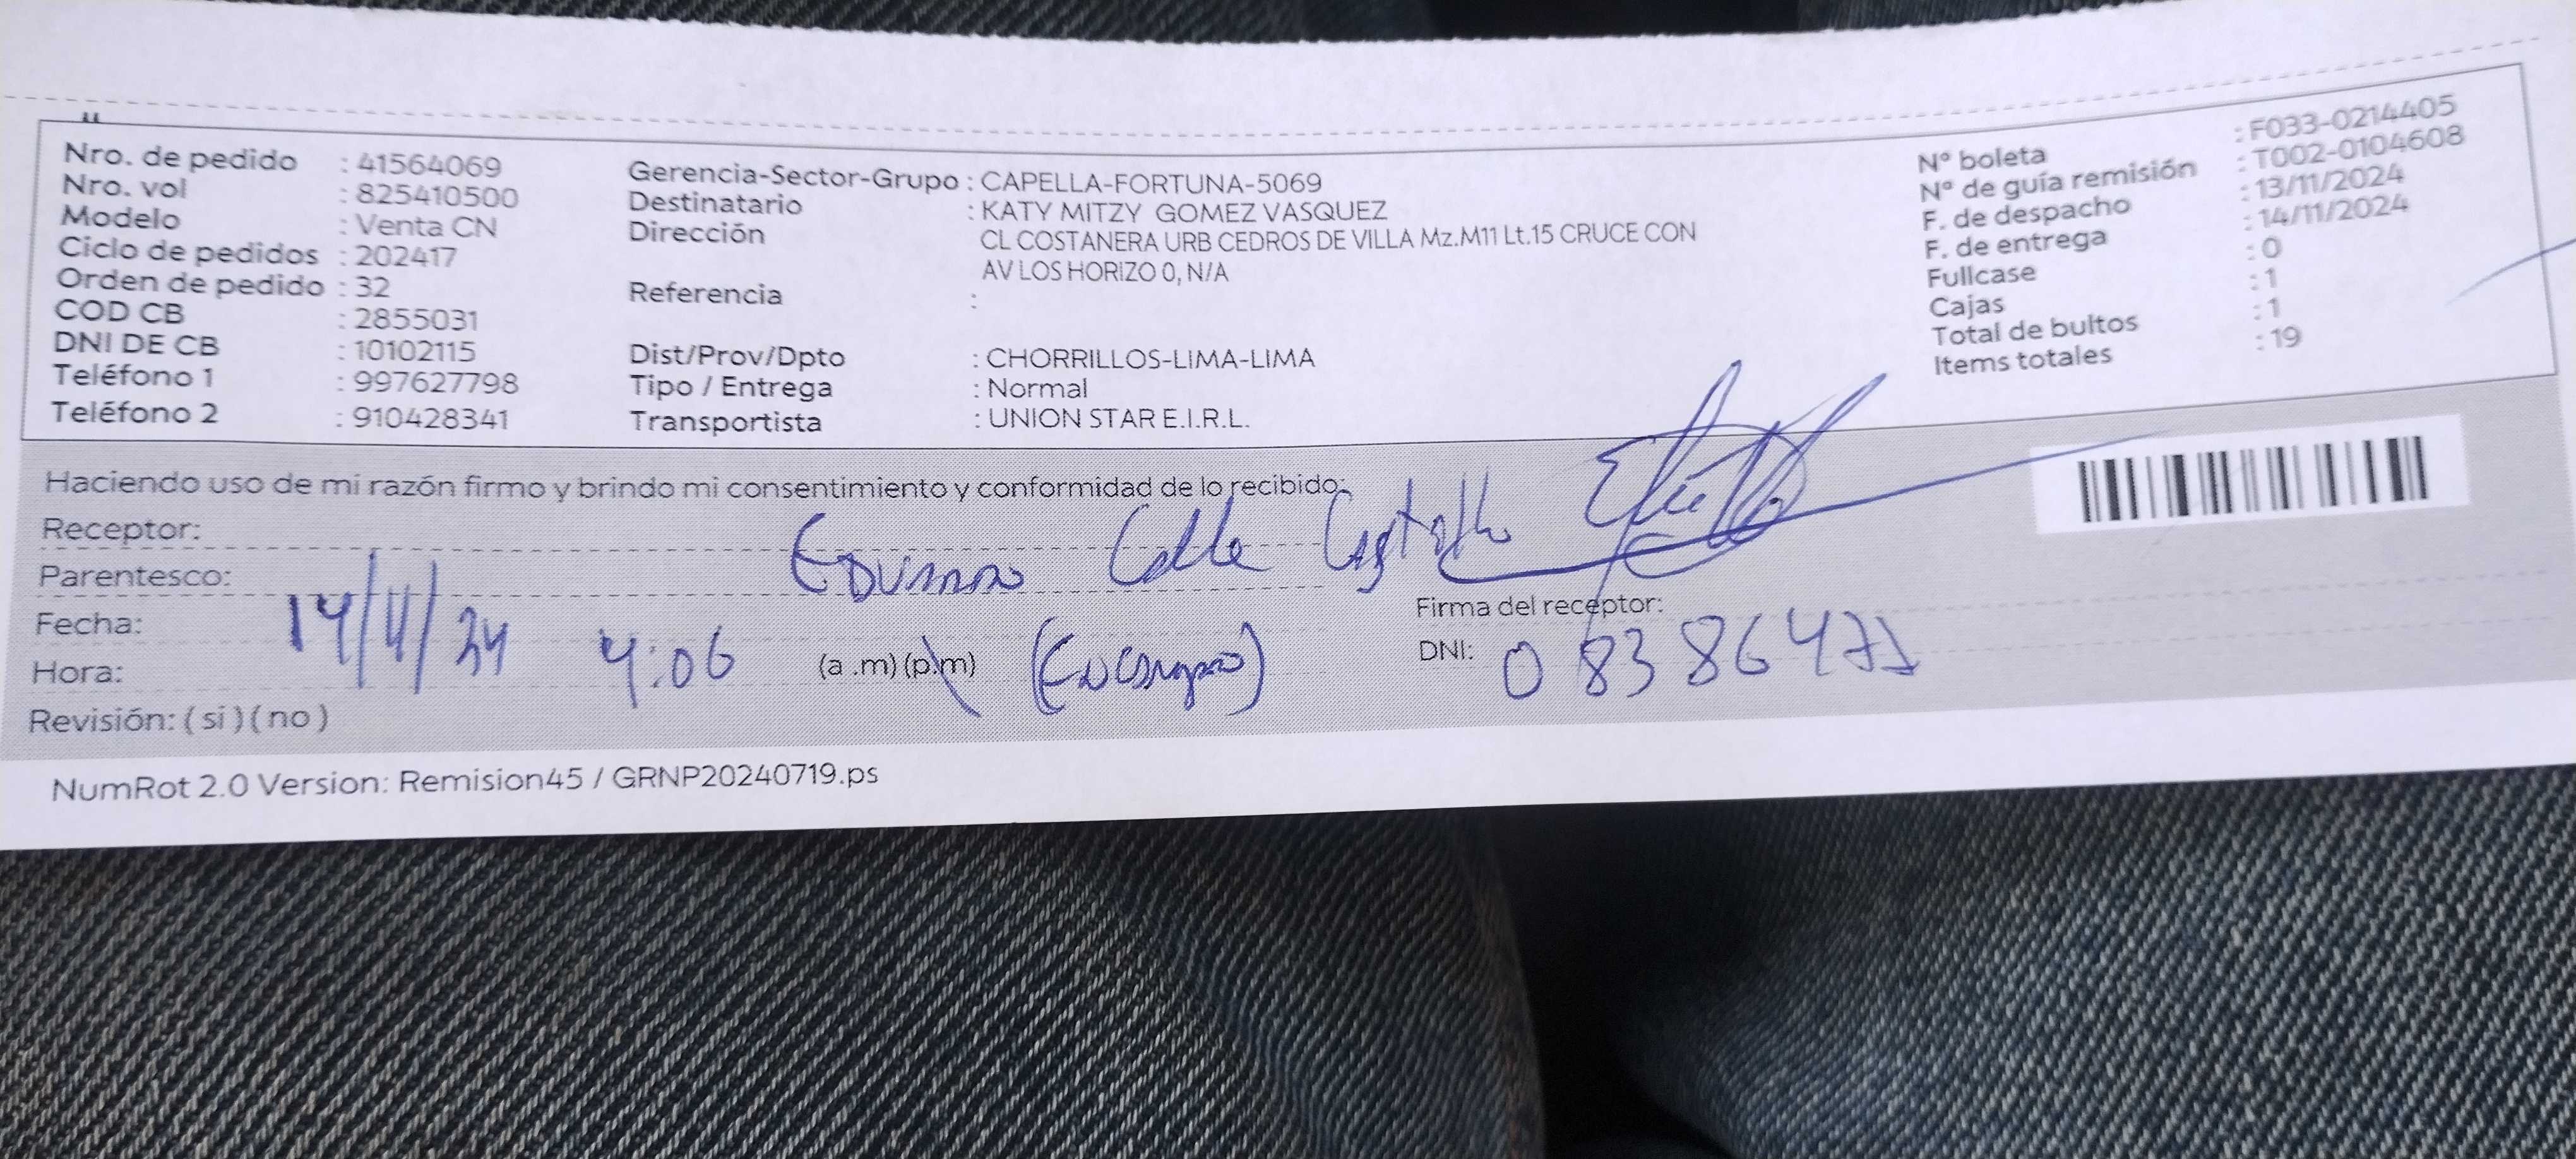 Nro. de pedido : 41564069
Nro. vol : 825410500
Modelo : Venta CN
Ciclo de pedidos : 202417
Orden de pedido : 32
COD CB : 2855031
DNI DE CB : 10102115
Teléfono 1 : 997627798
Teléfono 2 : 910428341
Gerencia-Sector-Grupo : CAPELLA-FORTUNA-5069
Destinatario : KATY MITZY GOMEZ VASQUEZ
Dirección CL COSTANERA URB CEDROS DE VILLA Mz.M11 Lt.15 CRUCE CON
AV LOS HORIZO 0, N/A
Referencia :
Dist/Prov/Dpto : CHORRILLOS-LIMA-LIMA
Tipo / Entrega : Normal
Transportista : UNION STAR E.I.R.L.
N° boleta : F033-0214405
N° de guía remisión : T002-0104608
F. de despacho : 13/11/2024
F. de entrega : 14/11/2024
Fullcase : 0
Cajas : 1
Total de bultos : 1
Items totales : 19
Haciendo uso de mi razón firmo y brindo mi consentimiento y conformidad de lo recibido:
Receptor: Calle
Parentesco:
Fecha: 14/11/24
Hora: 4:06 (a .m) (p.m) (Encargado)
Firma del receptor:
DNI: 08386471
Revisión: ( si ) ( no )
NumRot 2.0 Version: Remision45 / GRNP20240719.ps